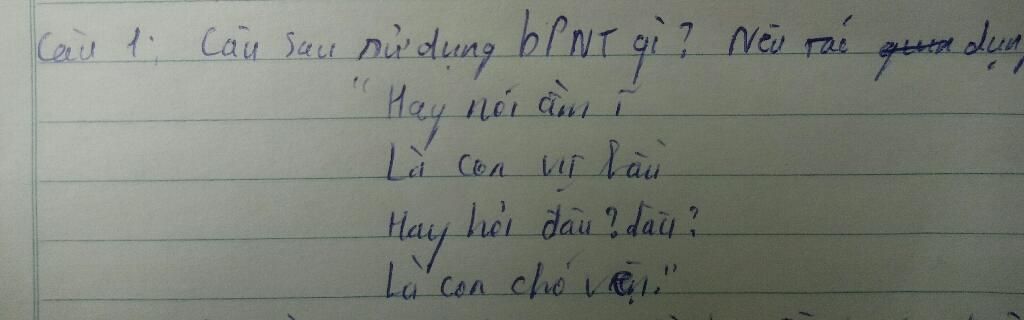 Câu 1: Câu sau sử dụng bPNT gì? Nêu tác dụng
"Hay nói ầm ĩ
Là con vịt bầu
Hay hỏi đâu? đâu?
Là con chó vện."